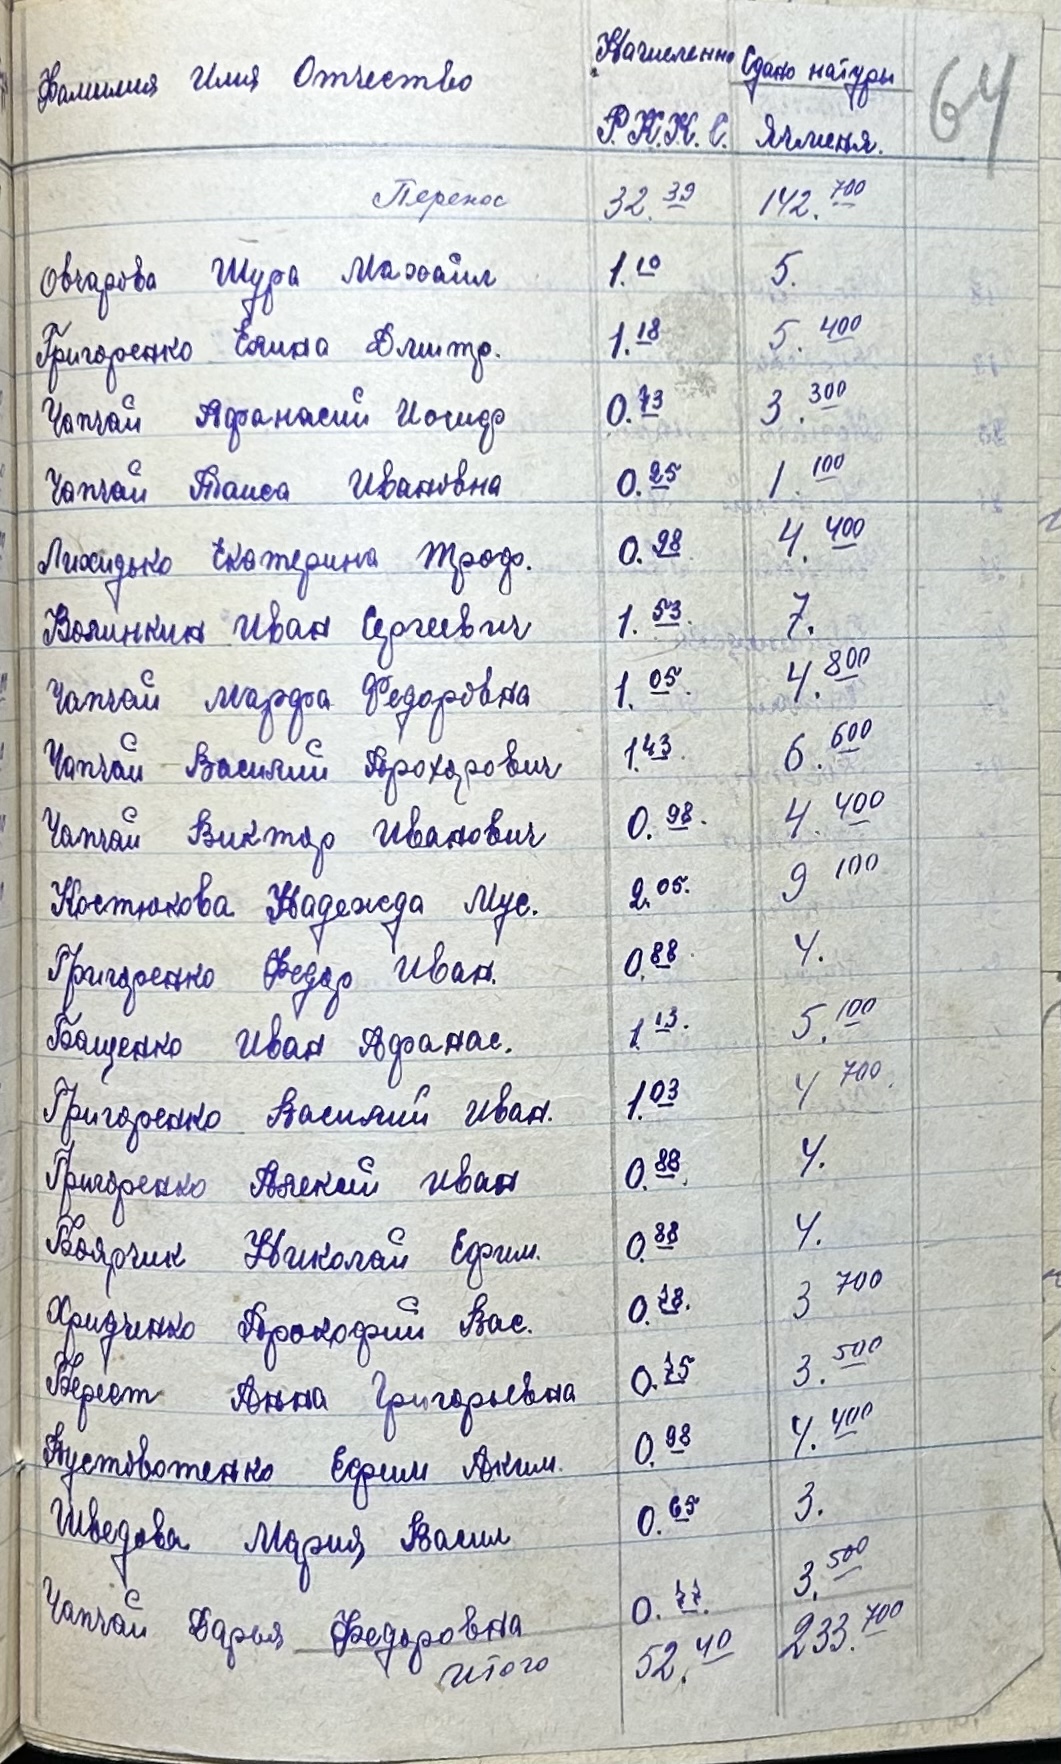 Фамилия Имя Отчество Начисленно Сдано натуры 64
Р.К.К.С. Ячменя.
Перенос 32.39 142.700
Овчарова Шура Михаил 1.10 5.
Григоренко Елина Дмитр. 1.18 5.400
Чапчай Афанасий Иосиф 0.73 3.300
Чапчай Таиса Ивановна 0.25 1.100
Лихидько Екатерина Троф. 0.98 4.400
Волинкин Иван Сергеевич 1.53. 7.
Чапчай Марфа Федоровна 1.05. 4.800
Чапчай Василий Прохорович 1.43. 6.600
Чапчай Виктор Иванович 0.98. 4.400
Костюкова Надежда Мус. 2.05. 9 100
Григоренко Федор Иван. 0.88. 4.
Бащенко Иван Афанас. 1.13. 5.100
Григоренко Василий Иван. 1.03 4 700.
Григоренко Алексий Иван 0.88. 4.
Боярчик Николай Ефим. 0.88 4.
Хридченко Прокофий Вас. 0.78. 3 700
Берест Анна Григорьевна 0.75 3.500
Пустовотенко Ефрим Аким. 0.98 4.400
Шведова Мария Васил 0.65 3.
Чапчай Дарья Федоровна 0.77. 3.500
Итого 52.40 233.700